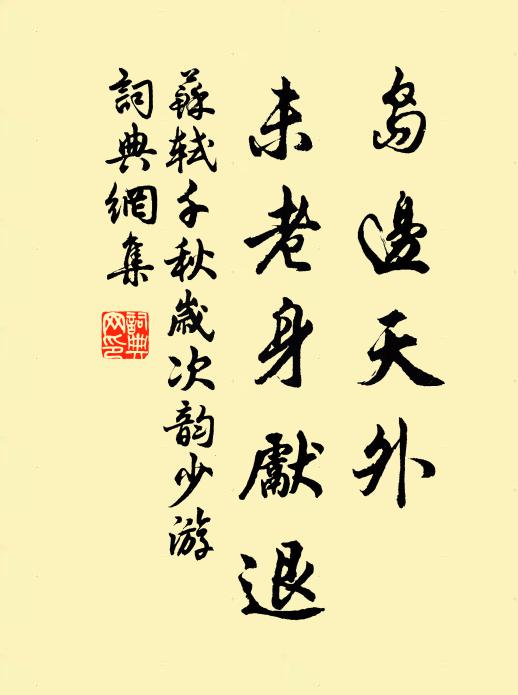 島邊天外
未老身獻退
蘇軾千秋歲次韵少游
詞典網集
詞典网印